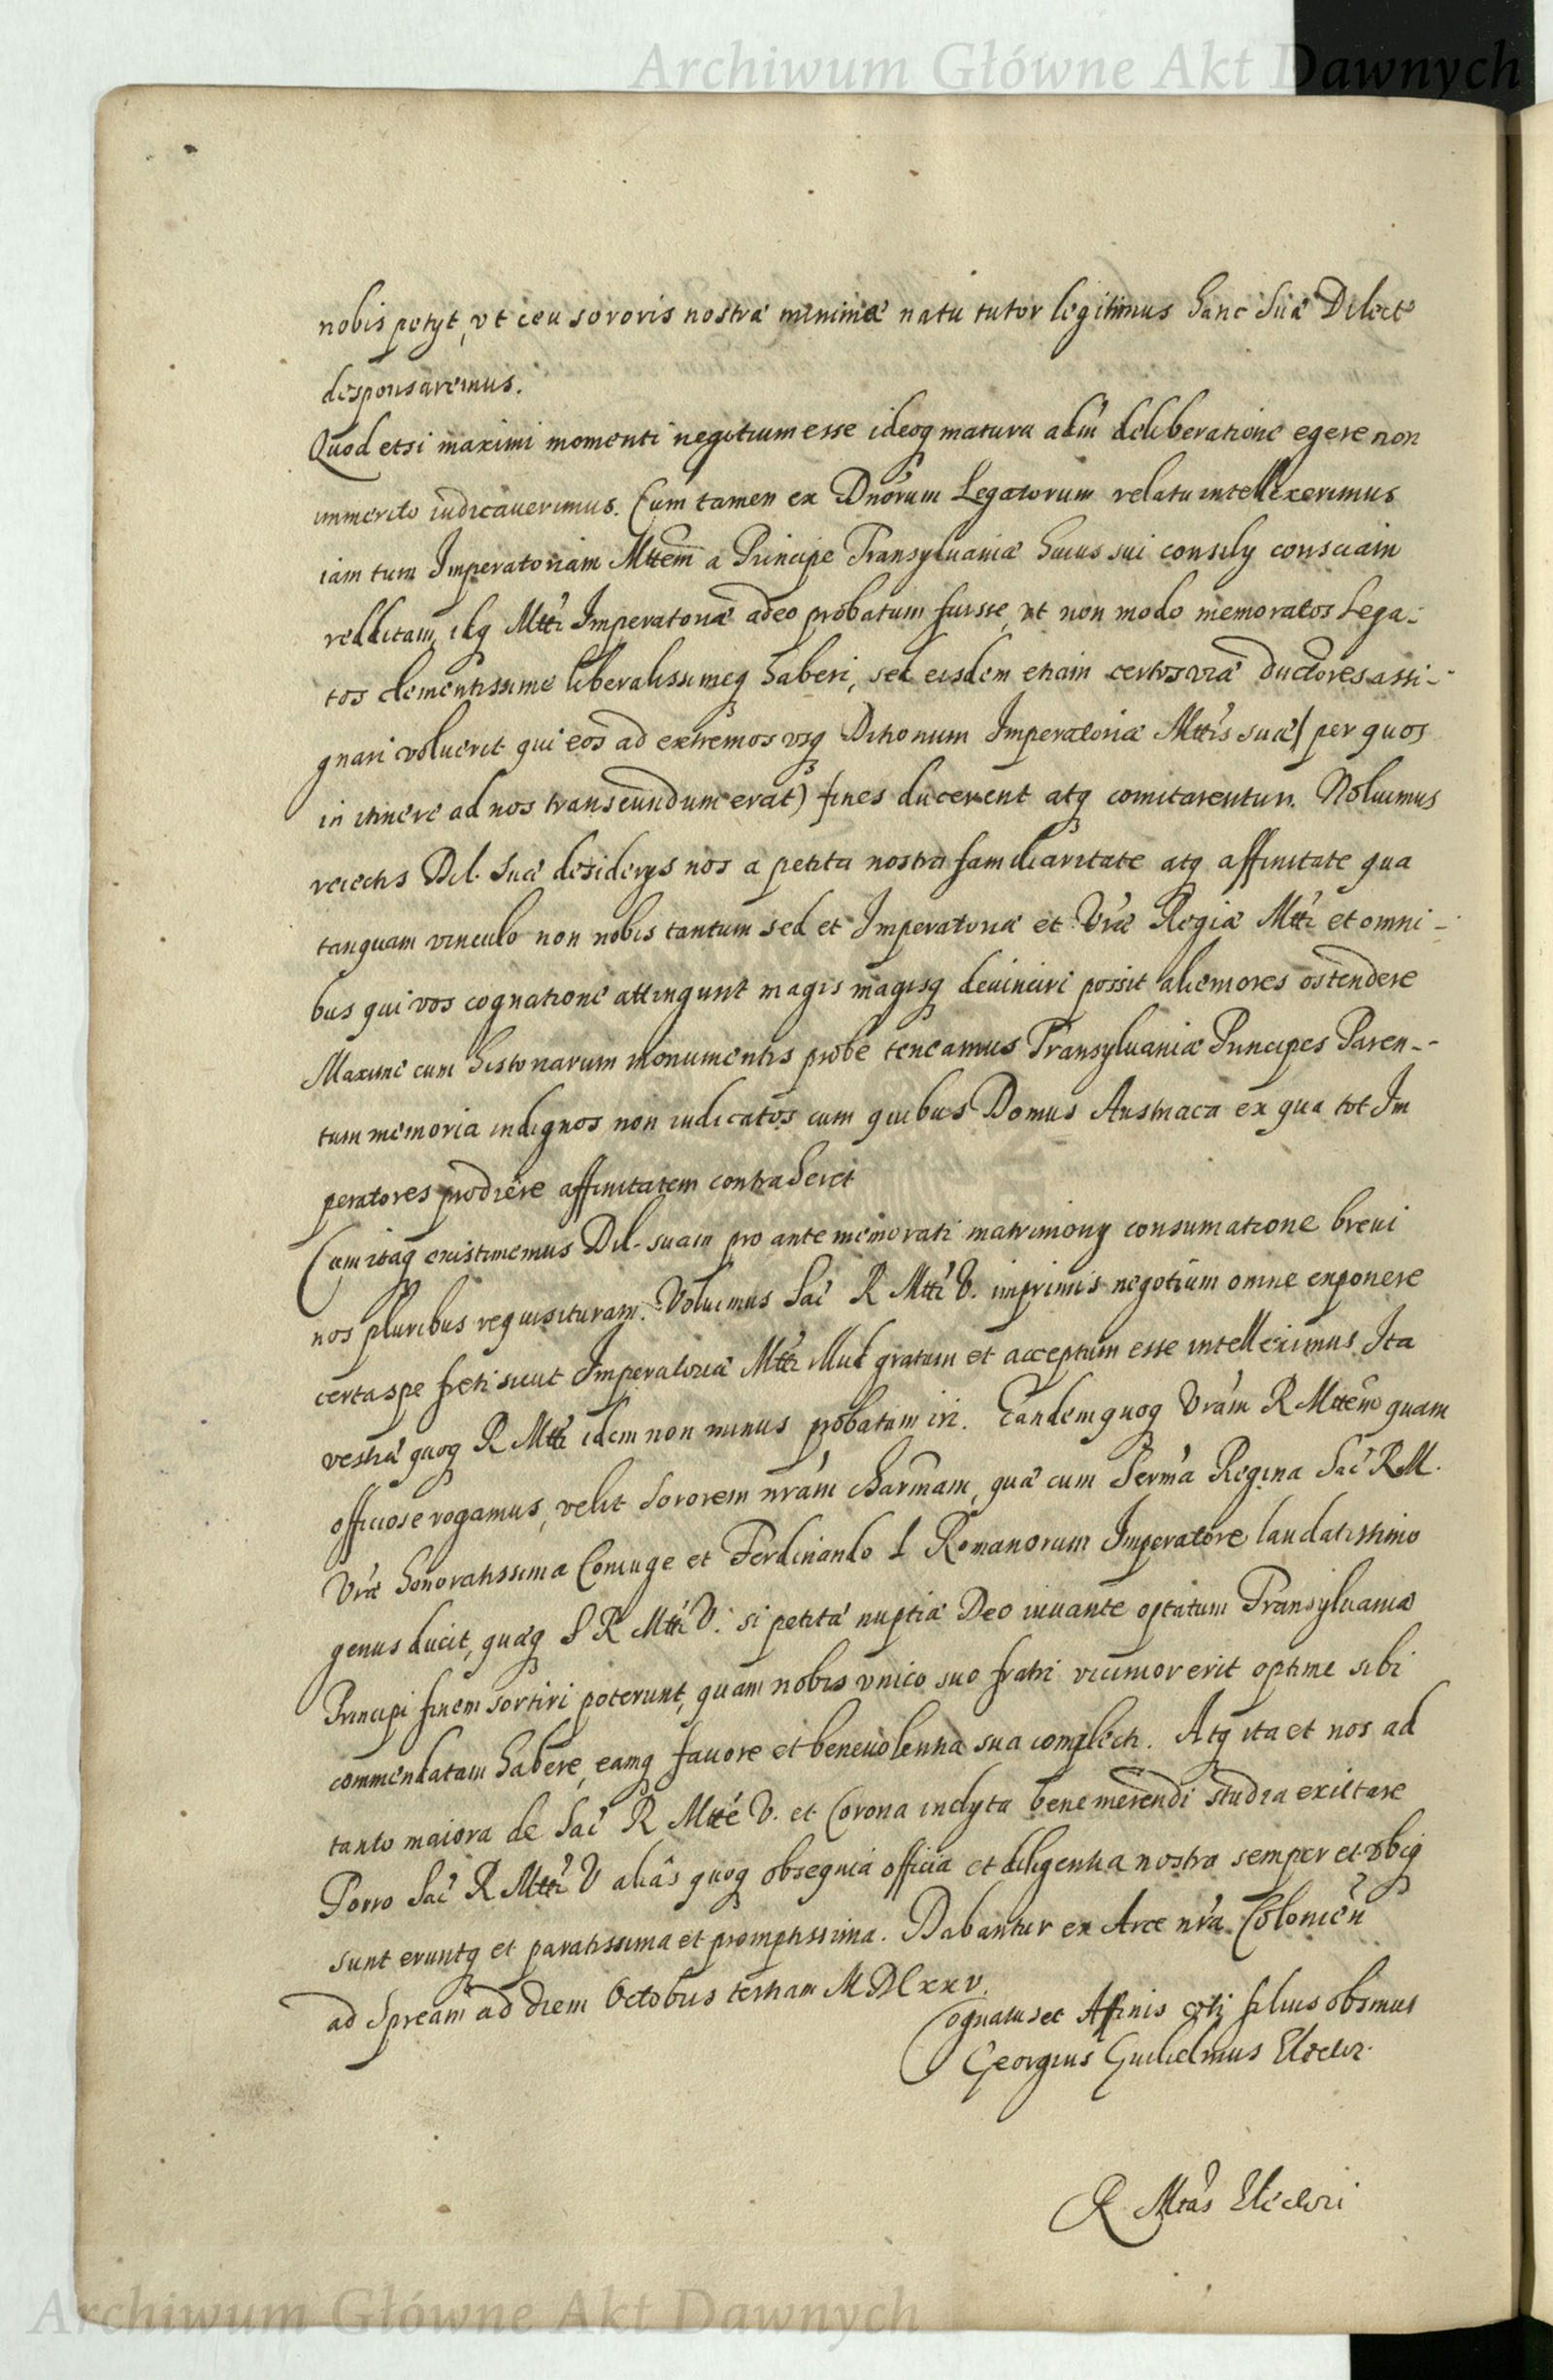 Archiwum Główne Akt Dawnych
nobis petyt, vt ceu sororis nostræ minimæ natu tutor legitimus hanc Suæ Dilectⁱ
desponsaremus.
Quod etsi maximi momenti negotium esse ideoq matura adm̄ deliberatione egere non
immerito iudicauerimus. Cum tamen ex Dnōrum Legatorum relatu intellexerimus
iam tum Imperatoriam Mttem a Principe Transyluaniæ huius sui consily consciam
redditam, idq Mtti Imperatoriæ adeo probatum fuisse, vt non modo memoratos Lega-
tos clementissime liberalissimeq haberi, sed eisdem etiam certos viæ ductores assi-
gnari voluerit qui eos ad extremos vsq Ditionum Imperatoriæ Mttis suæ (per quos
in itinere ad nos transeundum erat) fines ducerent atq comitarentur. Noluimus
reiectis Dil. Suæ desiderys nos a petita nostra familiaritate atq affinitate qua
tanquam vinculo non nobis tantum sed et Imperatoriæ et Vræ Regiæ Mtti et omni-
bus qui vos cognatione attingunt magis magisq deuinciri possit alieniores ostendere
Maxime cum historiarum monumentis probe teneamus Transyluaniæ Principes Paren-
tum memoria indignos non iudicatos cum quibus Domus Austriaca ex qua tot Im
peratores prodiere affinitatem contraheret
Cum itaq existimemus Dil. suam pro ante memorati matrimony consumatione breui
nos pluribus requisituram. Voluimus Sac R Mtti V. imprimis negotium omne exponere
certa spe freti sicut Imperatoriæ Mtti illud gratum et acceptum esse intelleximus Ita
vestræ quoq R Mtti idem non minus probatum iri. Eandem quoq Vram R Mttem quam
officiose rogamus, velit Sororem nram charmam, quæ cum Serma Regina Sac R M.
Vræ honoratissima Coniuge et Ferdinando I Romanorum Imperatore laudatissimo
genus ducit, quæq S R Mtti V. si petitæ nuptiæ Deo iuuante optatum Transyluaniæ
Principi finem sortiri poterunt, quam nobis vnico suo fratri vicinior erit optime sibi
commendatam habere, eamq fauore et beneuolentia sua complecti. Atq ita et nos ad
tanto maiora de Sac R Mtte V. et Corona inclyta benemerendi studia excitare
Porro Sac R Mtti V aliâs quoq obsequia officia et diligentia nostra semper et vbiq
sunt eruntq et paratissima et promptissima. Dabantur ex Arce nra Colonien
ad Spream ad diem Octobris tertiam MDCxxv.
Cognatus et Affinis filius obsmus
Georgius Guilielmus Elector
R Mtas Electori
Archiwum Główne Akt Dawnych